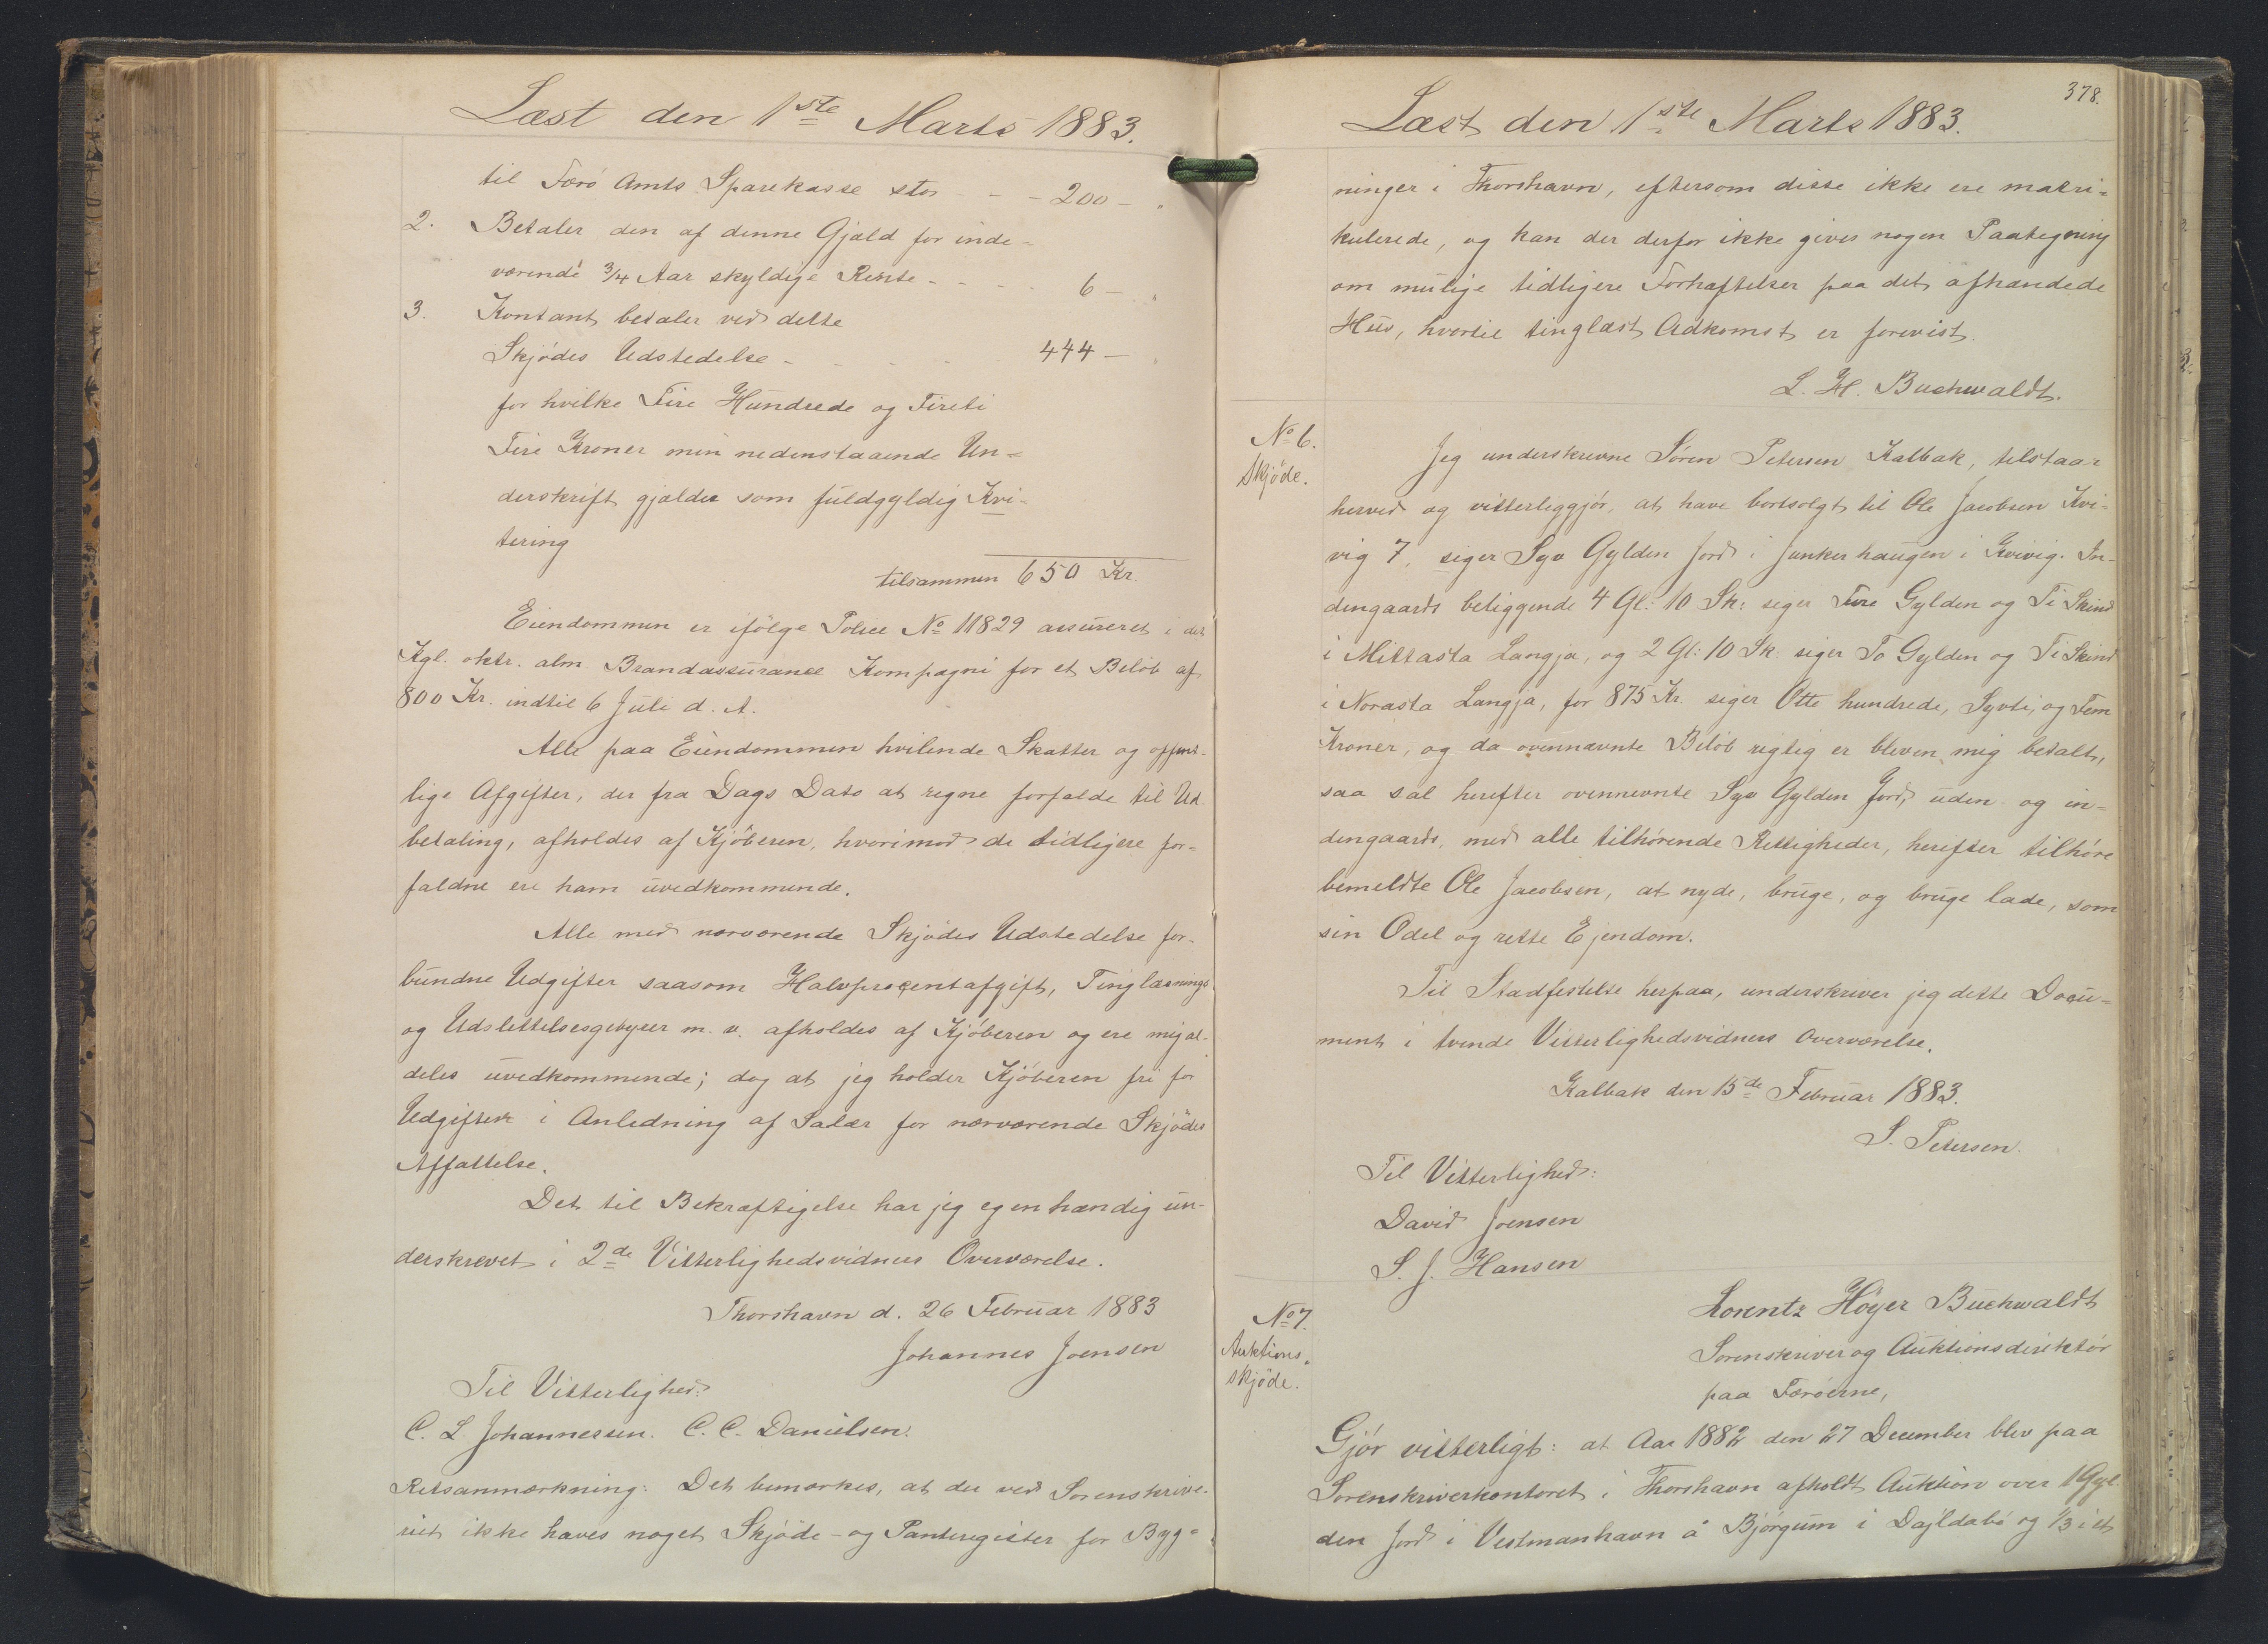 Læst den 1ste Marts 1883.
til Færö Amts Sparekasse stor - - - 200 - "
2. Betaler den af denne Gjæld for inde-
værende 3/4 Aar skyldige Rente - - - - 6 - "
3. Kontant betaler ved dette
Skjödes Udstedelse - - - - 444 - "
for hvilke Fire Hundrede og Fireti
Fire Kroner min nedenstaaende Un-
derskrift gjælder som fuldgyldig Kvi-
tering
tilsammen 650 Kr.
Eiendommen er ifölge Police No 11829 assureret i det
Kgl. oktr. alm. Brandassurance Kompagni for et Belöb af
800 Kr. indtil 6 Juli d. A.
Alle paa Eiendommen hvilende Skatter og offent-
lige Afgifter, der fra Dags Dato at regne forfalde til Ud-
betaling, afholdes af Kjöberen, hvorimod de tidligere for-
faldne ere ham uvedkommende.
Alle med nærværende Skjödes Udstedelse for-
bundne Udgifter saasom Halvprocentafgift, Tinglæsnings
og Udslettelsesgebyrer m. v. afholdes af Kjöberen og ere mig al-
deles uvedkommende; dog at jeg holder Kjöberen fri for
Udgifter i Anledning af Salær for nærværende Skjödes
Affattelse.
Det til Bekræftigelse har jeg egenhændig un-
derskrevet i 2de Vitterlighedsvidners Overværelse.
Thorshavn d. 26 Februar 1883
Johannes Joensen
Til Vitterlighed:
C. L. Johannessen. C. C. Danielsen.
Retsanmærkning: Det bemærkes, at der ved Sorenskrive-
riet ikke haves noget Skjöde- og Panteregister for Byg-
378.
Læst den 1ste Marts 1883.
ninger i Thorshavn, eftersom disse ikke ere matri-
kulerede, og kan der derfor ikke gives nogen Paategning
om mulige tidligere Forhæftelser paa det afhændede
Hus, hvortil tinglæst Adkomst er forevist.
L. H. Buchwaldt.
No 6.
Skjöde.
Jeg underskrevne Sören Petersen Kalbak, tilstaar
herved og vitterliggjör, at have bortsolgt til Ole Jacobsen Kvi-
vig 7, siger Syv Gylden Jord i Junkerhaugen i Kvivig. In-
dengaards beliggende 4 Gl: 10 Sk: siger Fire Gylden og Ti Skind
i Mittasta Langja, og 2 Gl: 10 Sk: siger To Gylden og Ti Skind
i Norasta Langja, for 875 Kr. siger Otte hundrede, Syvti, og Fem
Kroner, og da ovennævnte Belöb rigtig er bleven mig betalt,
saa sal herefter ovennevnte Syv Gylden Jord, uden og in-
dengaards, med alle tilhörende Rettigheder, herefter tilhöre
bemeldte Ole Jacobsen, at nyde, bruge, og bruge lade, som
sin Odel og rette Ejendom.
Til Stadfestelse herpaa, underskriver jeg dette Docu-
ment i tvende Vitterlighedsvidners Overværelse.
Kalbak den 15de Februar 1883.
S. Petersen.
Til Vitterlighed:
David Joensen
S. J. Hansen
No 7.
Auktions-
skjöde.
Lorentz Höyer Buchwaldt
Sorenskriver og Auktionsdirektör
paa Færöerne,
Gjör vitterligt: at Aar 1882 den 27 December blev paa
Sorenskriverkontoret i Thorshavn afholdt Auktion over 1 Gyl-
den Jord i Vestmanhavn á Björgum i Dajldabö og 1/3 i et